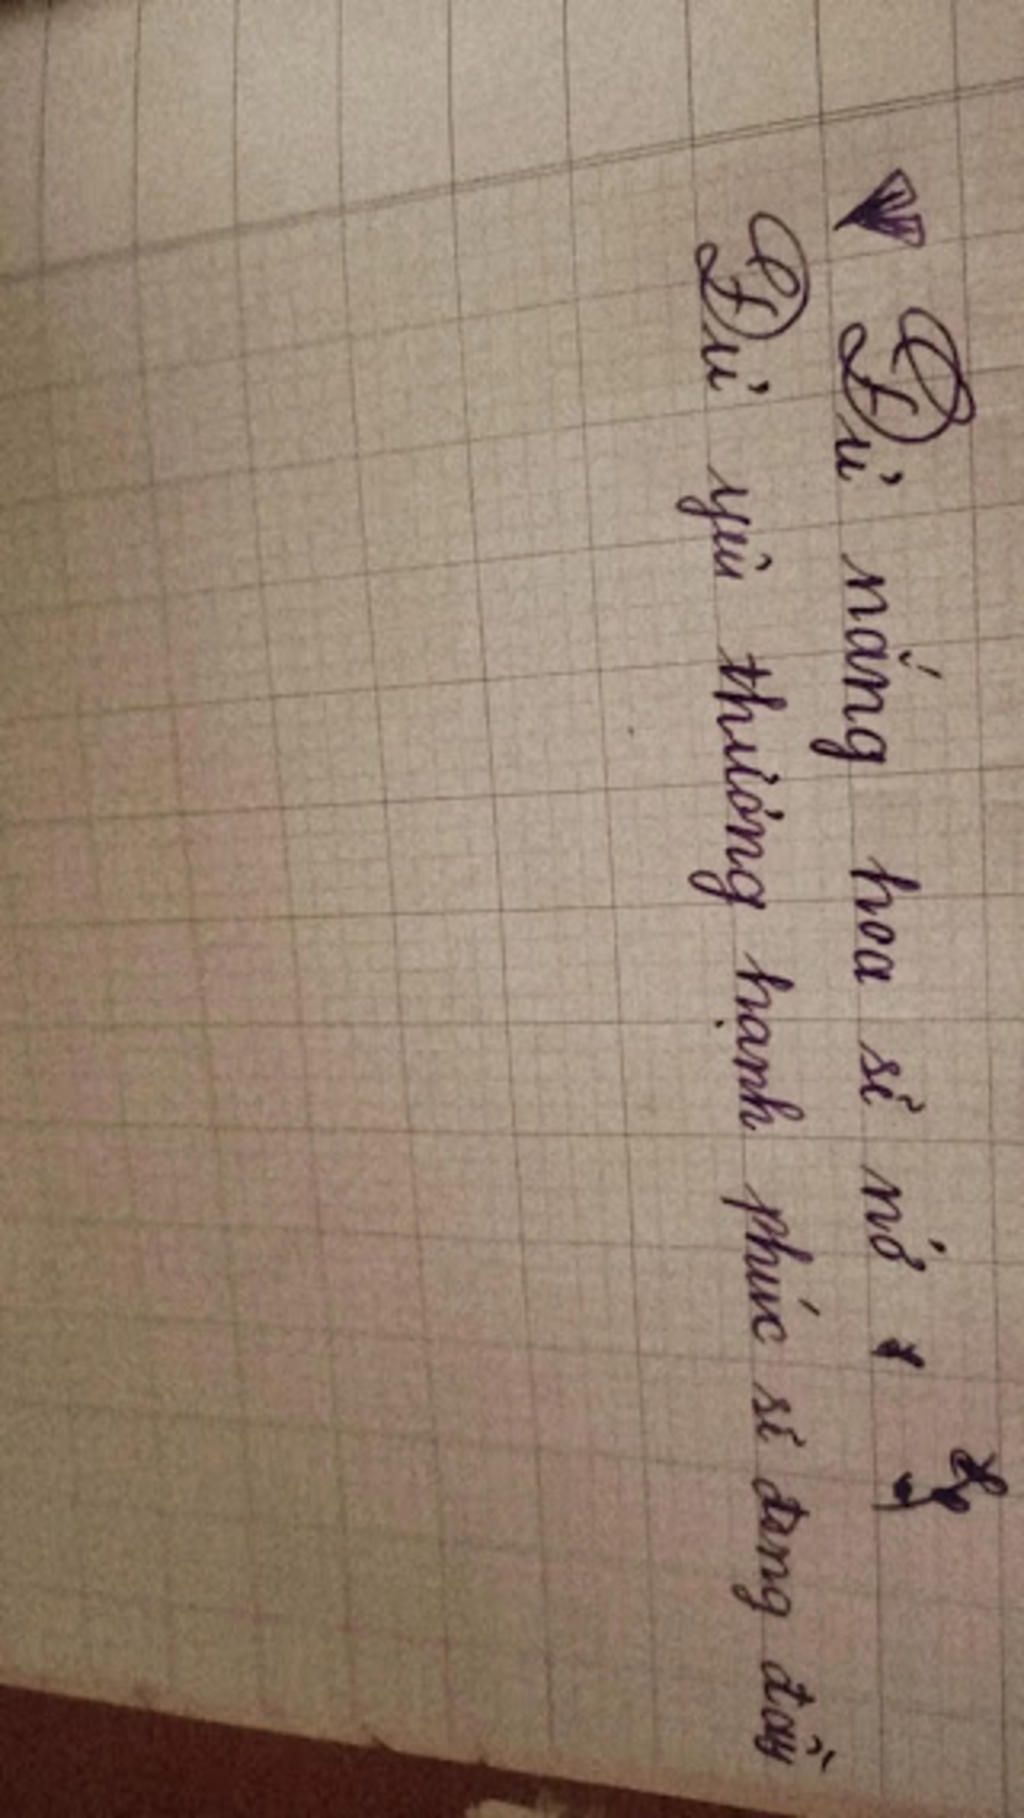 Đủ nắng hoa sẽ nở
Đủ yêu thương hạnh phúc sẽ dong đầy